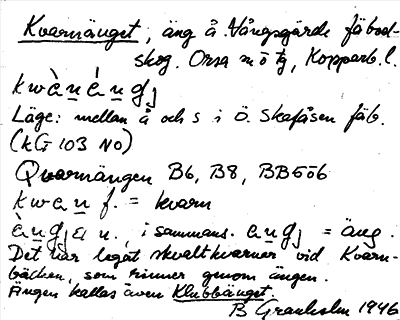 Kvarnänget, äng å Vångsgärde fäbod-
skog. Orsa m o tg, Kopparb. l.
kwὰṇέṇgj
Läge: mellan å och s i Ö. Skafåsen fäb.
(kG 103 NO)
Qvarnängen B6, B8, BB506
kwaṇ f. = kvarn
ὰṇgja n., i sammans. aṇgj = äng.
Det har legat skvaltkvarnar vid Kvarn-
bäcken, som rinner genom ängen.
Ängen kallas även Klubbänget.
B Granholm 1946